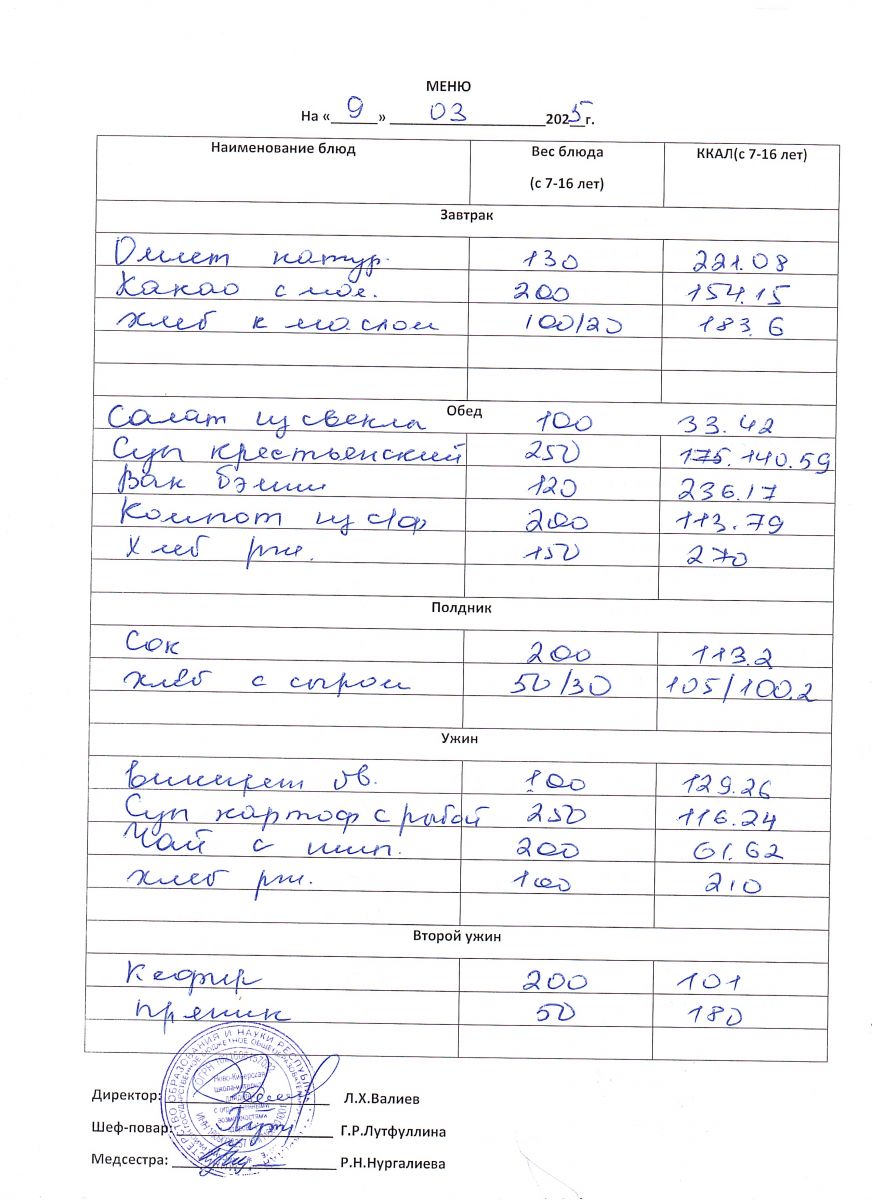 МЕНЮ
На « 9 » 03 2025 г.
Наименование блюд Вес блюда (с 7-16 лет) ККАЛ(с 7-16 лет)
Завтрак
Омлет натур. 130 221.08
Какао с мол. 200 154.15
хлеб к маслом 100/20 183.6
Обед
Салат из свекла 100 33.42
Суп крестьенский 250 175. 140.59
Вак бэлиш 120 236.17
Компот из с/ф 200 113.79
Хлеб рж. 150 270
Полдник
Сок 200 113.2
хлеб с сыром 50/30 105/100.2
Ужин
Винигрет ов. 100 129.26
Суп картоф с рыбой 250 116.24
Чай с шип. 200 61.62
хлеб рж. 100 210
Второй ужин
Кефир 200 101
пряник 50 180
Директор: Л.Х.Валиев
Шеф-повар: Г.Р.Лутфуллина
Медсестра: Р.Н.Нургалиева